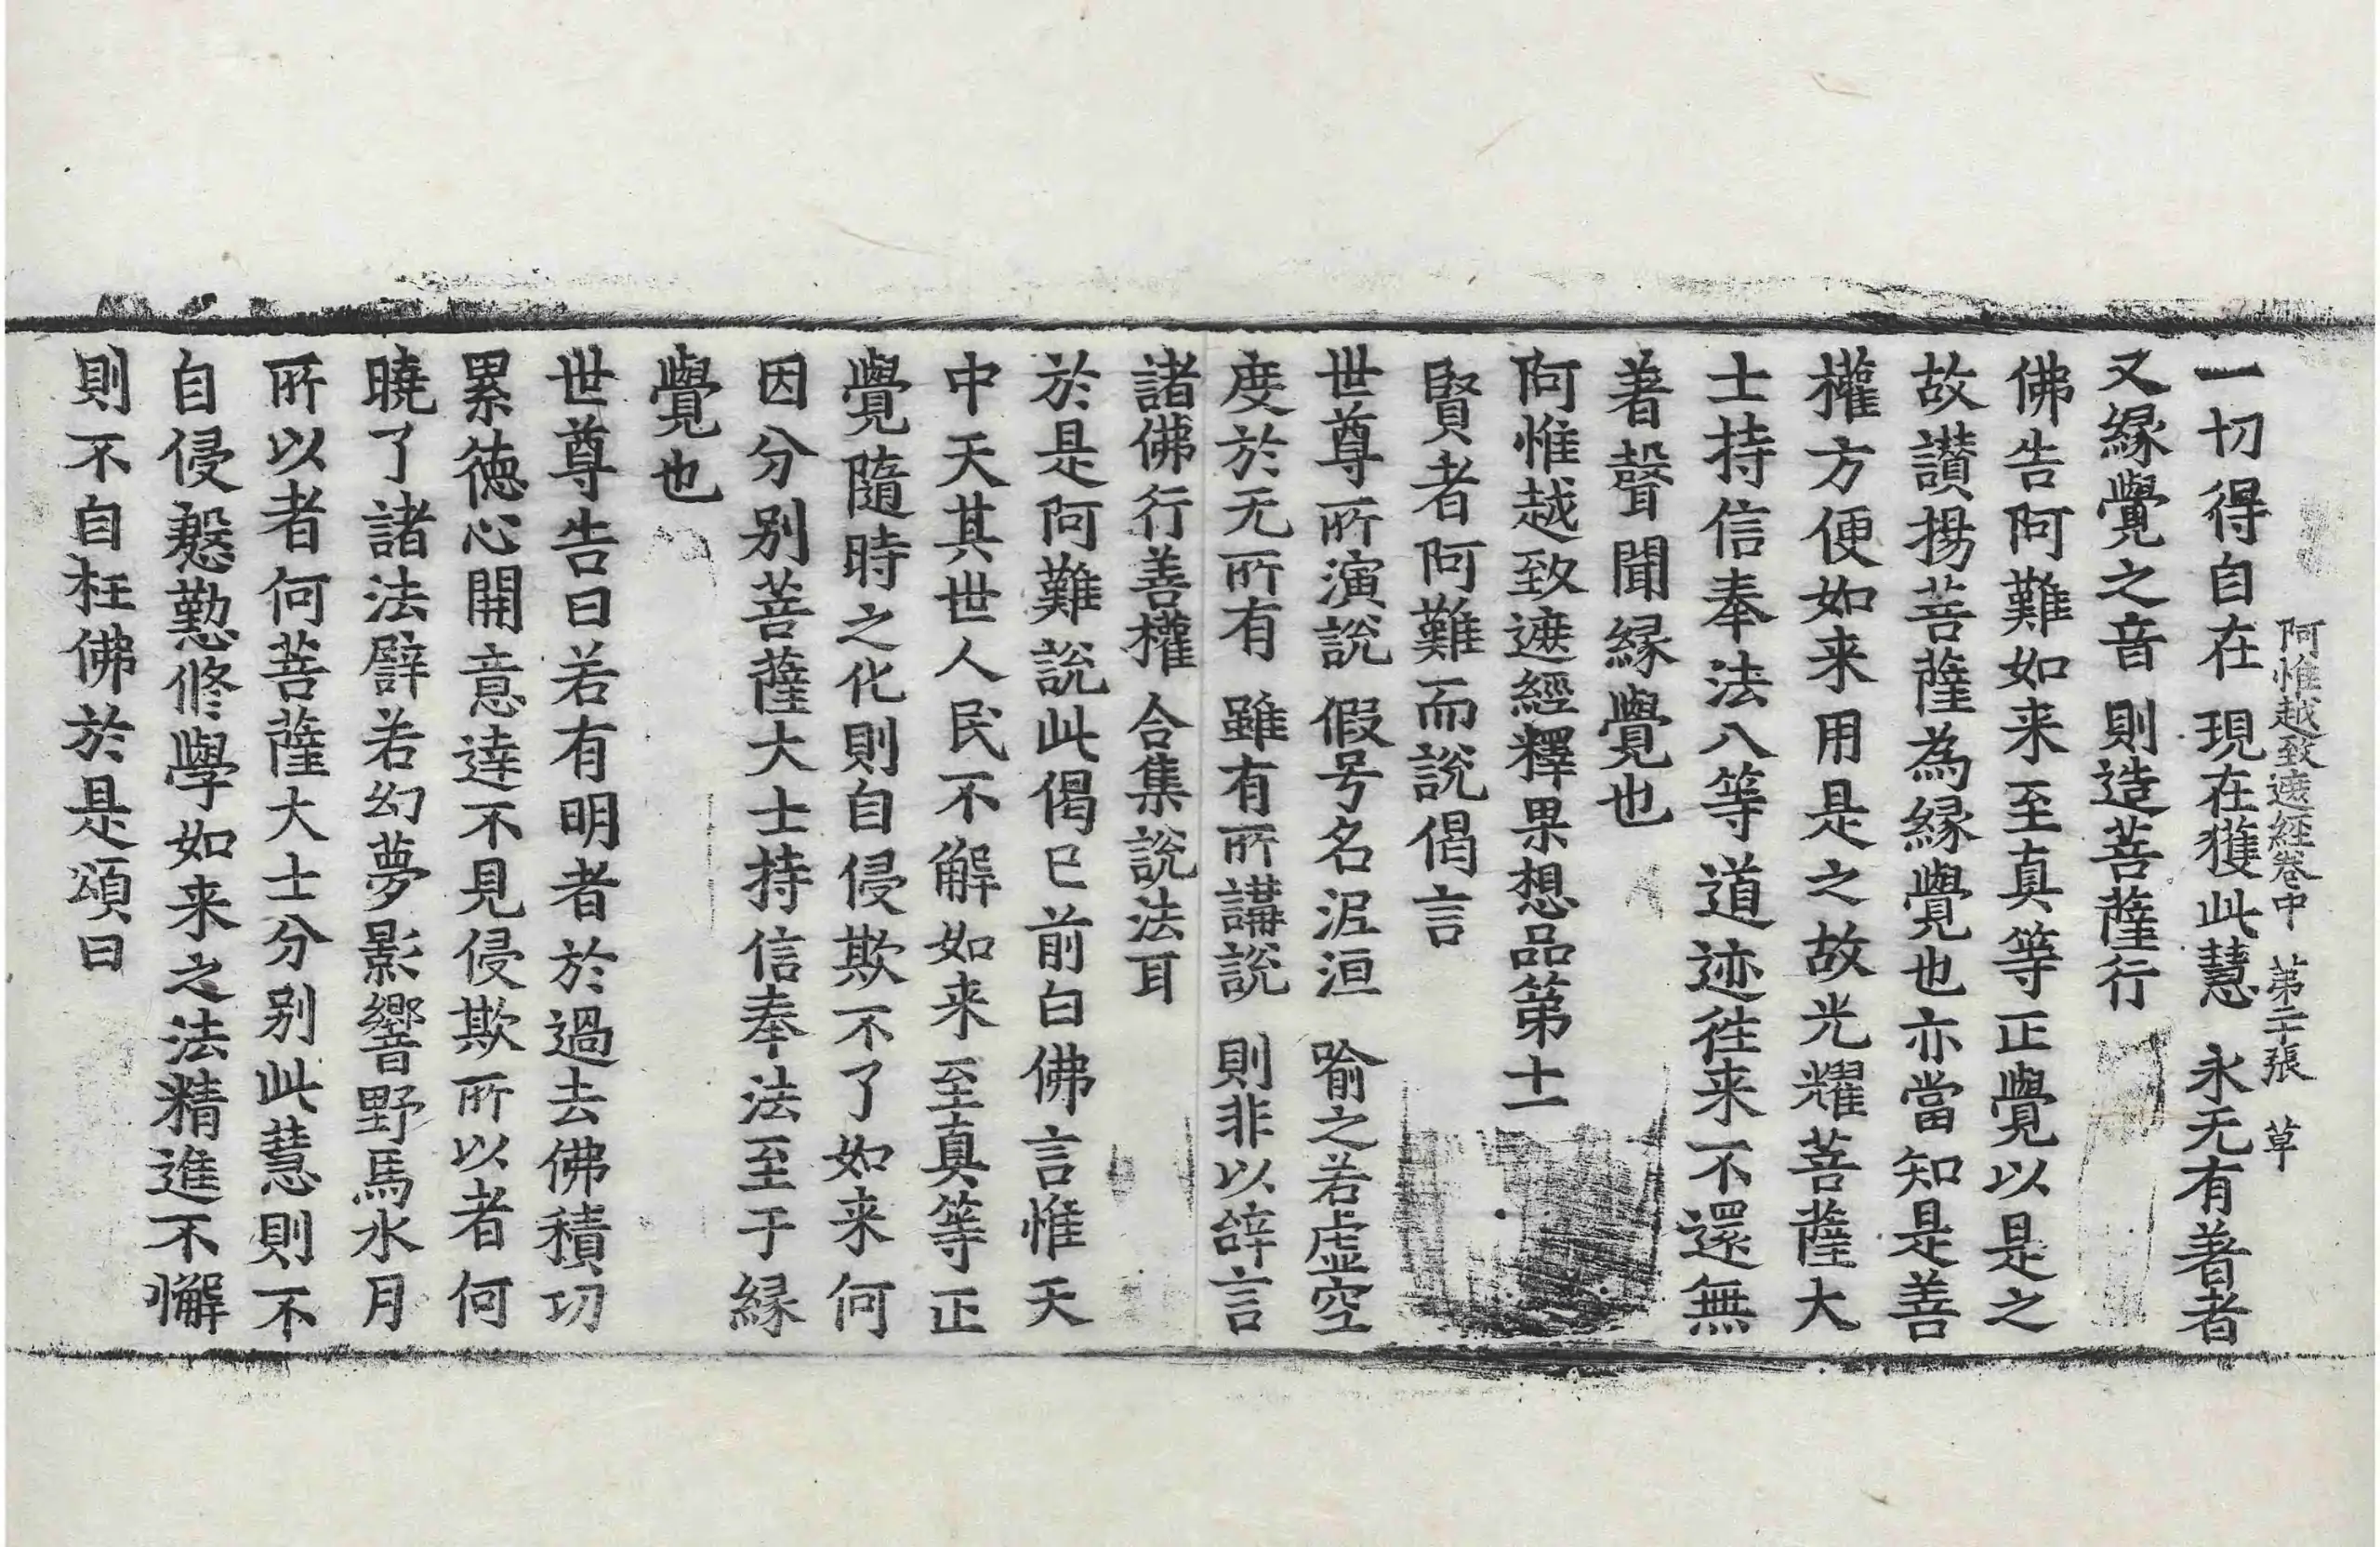 阿惟越致遮經卷中 第二十張 草
一切得自在 現在獲此慧 永无有著者
又縁覺之音 則造菩薩行
佛告阿難如来至真等正覺以是之
故讃揚菩薩為縁覺也亦當知是善
權方便如来用是之故光耀菩薩大
士持信奉法八等道迹徃来不還無
著聲聞縁覺也
阿惟越致遮經釋果想品第十一
賢者阿難而說偈言
世尊所演說 假号名泥洹 喻之若虛空
度於无所有 雖有所講說 則非以辭言
諸佛行善權 合集說法耳
於是阿難說此偈已前白佛言惟天
中天其世人民不解如来至真等正
覺隨時之化則自侵欺不了如来何
因分別菩薩大士持信奉法至于縁
覺也
世尊告曰若有明者於過去佛積功
累德心開意達不見侵欺所以者何
曉了諸法譬若幻夢影響野馬水月
所以者何菩薩大士分別此慧則不
自侵慇懃修學如来之法精進不懈
則不自枉佛於是頌曰